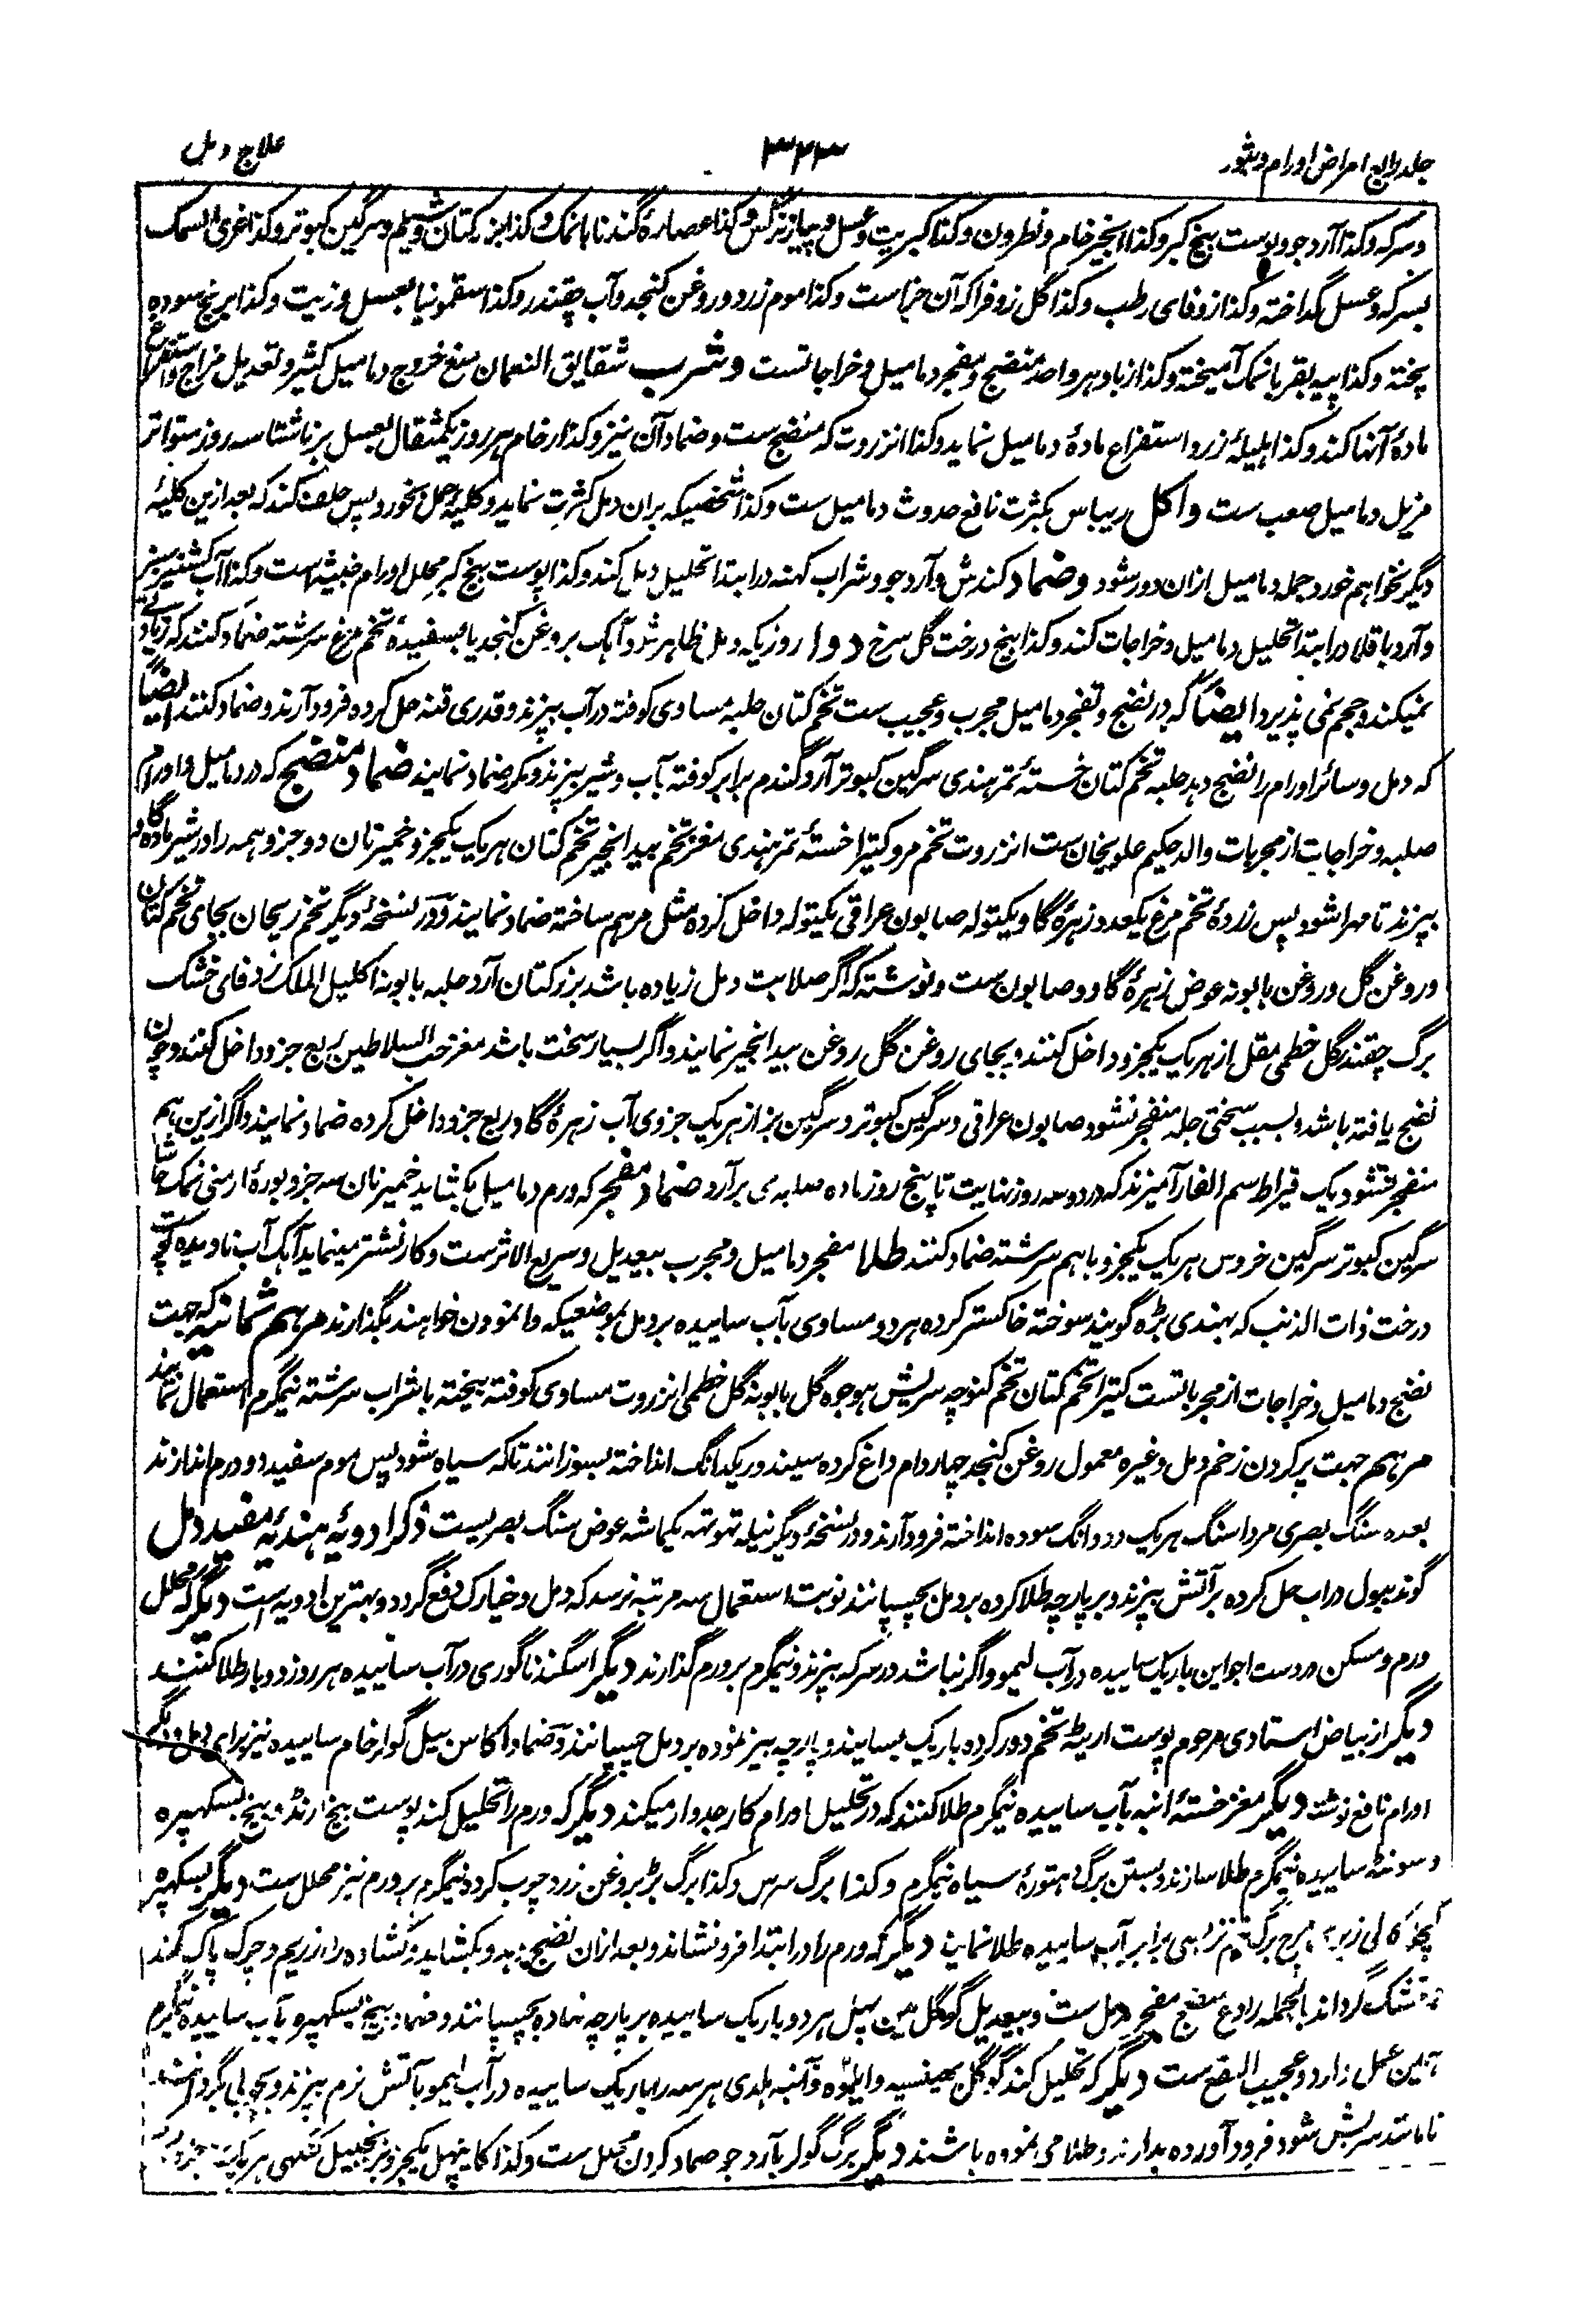 جلد رابع امراض اورام و بثور
۳۴۳
علاج دمل
و سرکه و کذا آرد جو و پوست بیخ کبر و کذا انجیر خام و نطرون و کذا کبریت و عسل و پیاز نرگس و کذا عصارهٔ گندنا با نمک و کذا بزر کتان و شیلم و سرگین کبوتر و کذا غری السمک
بسرکه و عسل گداخته و کذا زوفای رطب و کذا گل زوفرا که آن حزاست و کذا موم زرد و روغن کنجد و آب چقندر و کذا سقمونیا بعسل و زیت و کذا برنج سوده
پخته و کذا پیه بقر با نمک آمیخته و کذا زباد هر واحد منضج و مفجر دمامیل و خراجاتست و شرب شقایق النعمان منع خروج دمامیل کثیر و تعدیل مزاج و استفراغ
مادهٔ آنها کند و کذا هلیلهٔ زرد استفراغ مادهٔ دمامیل نماید و کذا انزروت که منضج ست و ضماد آن نیز و کذا رخام هر روز یکمثقال بعسل بر ناشتا سه روز متواتر
مزیل دمامیل صعب ست و اکل ریباس بکثرت نافع حدوث دمامیل ست و کذا شخصیکه بران دمل کثرت نماید و کلیهٔ حمل بخورد پس حلف کند که بعد ازین کلیهٔ
دیگر نخواهم خورد جمله دمامیل ازان دور شود و ضماد کندش و آرد جو و شراب کهنه در ابتدا تحلیل دمل کند و کذا پوست بیخ کبر محلل اورام خبیثه است و کذا آب کشنیز سبز
و آرد باقلا در ابتدا تحلیل دمامیل و خراجات کند و کذا بیخ درخت گل سرخ دوا روزیکه دمل ظاهر شود آهک بروغن کنجد یا بسفیدهٔ تخم مرغ سرشته ضماد کنند که زیادتی
نمیکند و حجم نمی پذیرد ایضاً که در نضج و تفجر دمامیل مجرب و عجیب ست تخم کتان حلبه مساوی کوفته در آب بپزند و قدری قنه حل کرده فرود آرند و ضماد کنند ایضاً
که دمل و سائر اورام را نضج دهد حلبه تخم کتان خستهٔ تمر هندی سرگین کبوتر آرد گندم برابر کوفته بآب و شیر بپزند و مکرر ضماد نمایند ضماد منضج که در دمامیل و اورام
صلبه و خراجات از مجربات والد حکیم علویخان ست انزروت تخم مرو کتیرا خستهٔ تمر هندی مغز تخم بید انجیر تخم کتان هر یک یکجزو خمیر نان دو جزو همه را در شیر ماده گاو
بپزند تا مهرا شود پس زردهٔ تخم مرغ یکعدد زهرهٔ گاو یکتوله صابون عراقی یکتوله داخل کرده مثل مرهم ساخته ضماد نمایند و در نسخهٔ دیگر تخم ریحان بجای تخم کتان
و روغن گل و روغن بابونه عوض زهرهٔ گاو و صابون ست و نوشته که اگر صلابت دمل زیاده باشد بزر کتان آرد حلبه بابونه اکلیل الملک زوفای خشک
برگ چقندر گل خطمی مقل از هر یک یکجزو داخل کنند و بجای روغن گل روغن بید انجیر نمایند و اگر بسیار سخت باشد مغز حب السلاطین ربع جزو داخل کنند و چون
نضج یافته باشد و بسبب سختی جلد منفجر نشود صابون عراقی و سرگین کبوتر و سرگین بز از هر یک جزوی آب زهرهٔ گاو ربع جزو داخل کرده ضماد نمایند و اگر ازین هم
منفجر نشود یک قیراط سم الفار آمیزند که در دو سه روز نهایت تا پنج روز ماده صلبه می برآرد ضماد مفجر که ورم دمامیل بکشاید خمیر نان سه جزو بورهٔ ارمنی نمک حاشا
سرگین کبوتر سرگین خروس هر یک یکجزو باهم سرشته ضماد کنند طلا مفجر دمامیل و مجرب بیعدیل و سریع الاثرست و کار نشتر مینماید آهک آب نادیده پوست
درخت ذات الذنب که بهندی بڑه گویند سوخته خاکستر کرده هر دو مساوی بآب ساییده بر دمل بموضعیکه وا نمودن خواهند بگذارند مرهم شمانیه که جهت
نضج دمامیل و خراجات از مجرباتست کتیرا تخم کتان تخم کنوچه سریش هوجوه گل بابونه گل خطمی انزروت مساوی کوفته بیخته با شراب سرشته نیمگرم استعمال نمایند
مرهم جهت پر کردن زخم دمل و غیره معمول روغن کنجد چهار دام داغ کرده سیندور یکدانگ انداخته بسوزانند تاکه سیاه شود پس موم سفید دو درم اندازند
بعده سنگ بصری مرداسنگ هر یک دو دانگ سوده انداخته فرود آرند و در نسخهٔ دیگر نیله تهوتهه یکماشه عوض سنگ بصریست ذکر ادویهٔ هندیهٔ مفید دمل
گوند ببول در آب حل کرده بر آتش بپزند و بر پارچه طلا کرده بر دمل بچسپانند نوبت استعمال سه مرتبه نرسد که دمل و خیارک دفع گردد و بهترین ادویه است دیگر که محلل
ورم و مسکن درد ست اجواین باریک ساییده در آب لیمو و اگر نباشد در سرکه بپزند و نیمگرم بر ورم گذارند دیگر اسگند ناگوری در آب ساییده هر روز دو بار طلا کنند
دیگر از بیاض استادی مرحوم پوست اریٹه تخم دور کرده باریک بسایند و پارچه بیز نموده بر دمل چسپانند و ضماد اکاس بیل گوار خام ساییده نیز برای دمل و دیگر
اورام نافع نوشته دیگر مغز خستهٔ انبه بآب ساییده نیمگرم طلا کنند که در تحلیل اورام کار جدوار میکند دیگر که ورم را تحلیل کند پوست بیخ ارنڈ بیخ بسکهپره
و سونٹه ساییده نیمگرم طلا سازند و بستن برگ دهتورهٔ سیاه نیمگرم و کذا برگ سرس و کذا برگ بڑ بروغن زرد چوب کرده نیمگرم بر ورم نیز محلل ست دیگر بسکهپره
برابر بآب ساییده طلا نمایند دیگر که ورم را در ابتدا فرو نشاند و بعد ازان نضج دهد و بکشاید و کشاده را از ریم و چرک پاک کند
خشک گرداند بالجمله رادع منضج مفجر دمل ست و بیعدیل گوگل مین پهل هر دو باریک ساییده بر پارچه نهاده بچسپانند و ضماد بیخ بسکهپره بآب ساییده نیمگرم
همین عمل دارد و عجیب النفع ست دیگر که تحلیل کند گوگل بهینسیه و ایلوه و آنبه هلدی هر سه را باریک ساییده در آب لیمو بآتش نرم بپزند و بچوبی
تا مانند سریش شود فرود آورده بدارند و طلا می نموده باشند دیگر برگ گولر بآرد جو ضماد کردن محلل ست و کذا کایپهل یکجزو زنجبیل کٹکی هر یک